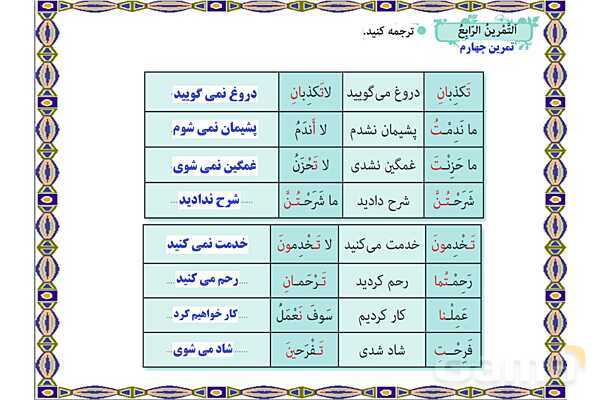 اَلتَّمْرينُ الرّابِعُ ● ترجمه کنید.
تمرین چهارم
تَکذِبانِ دروغ می‌گویید لاتَکذِبانِ دروغ نمی گویید
ما نَدِمْتُ پشیمان نشدم لا أَندَمُ پشیمان نمی شوم
ما حَزِنْتَ غمگین نشدی لا تَحْزَنُ غمگین نمی شوی
شَرَحْتُنَّ شرح دادید ما شَرَحْتُنَّ شرح ندادید
تَخْدِمونَ خدمت می‌کنید لا تَخْدِمونَ خدمت نمی کنید
رَحِمْتُما رحم کردید تَرْحَمانِ رحم می کنید
عَمِلْنا کار کردیم سَوفَ نَعْمَلُ کار خواهیم کرد
فَرِحْتِ شاد شدی تَفْرَحینَ شاد می شوی
Gama